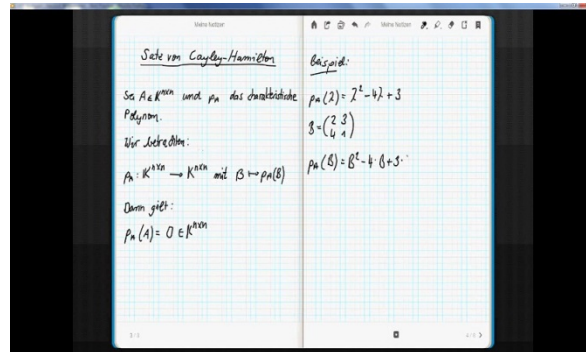 Meine Notizen
Satz von Cayley-Hamilton
Sei A ∈ K^{n×n} und p_A das charakteristische
Polynom.
Wir betrachten:
p_A : K^{n×n} → K^{n×n} mit B ↦ p_A(B)
Dann gilt:
p_A(A) = 0 ∈ K^{n×n}
Meine Notizen
Beispiel:
p_A(λ) = λ² - 4λ + 3
B = (2 3
4 1)
p_A(B) = B² - 4·B + 3·